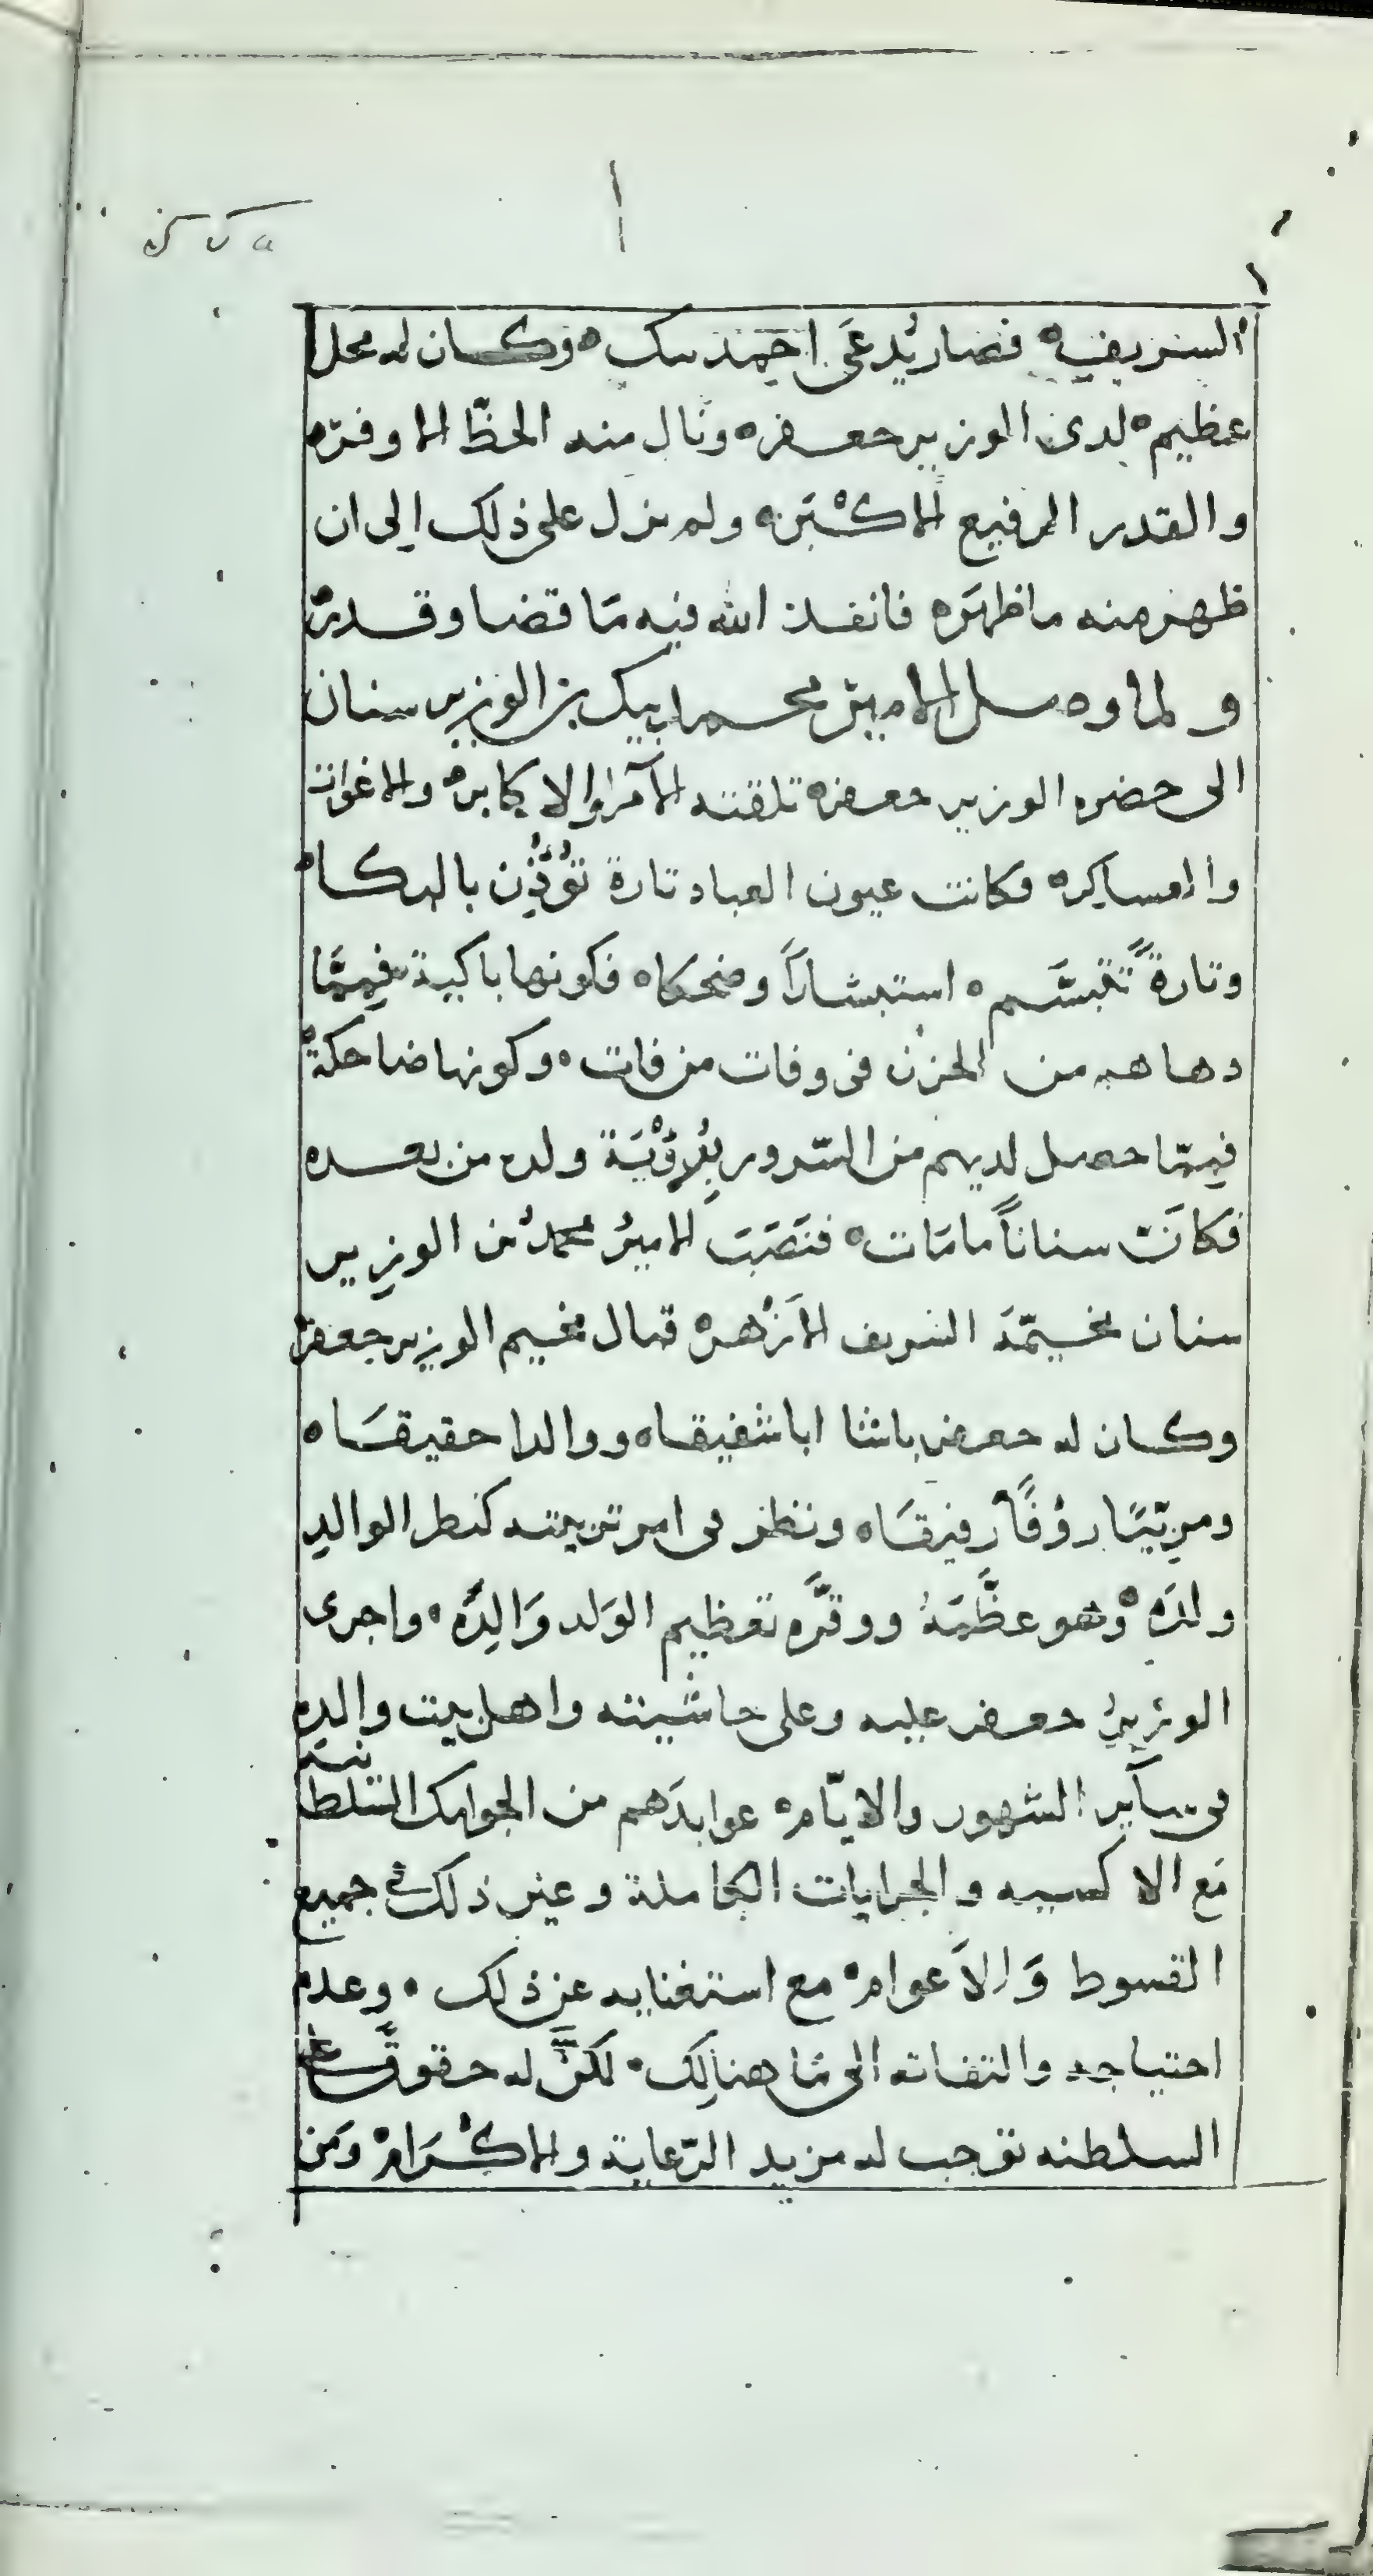 الشريفه فصار يُدعَى احمد بيك ه وكان له محل
عظيم ه لدى الوزير جعفره ونال منه الحظّ الاوفره
والقدر الرفيع الاكْبَره ولم يزل على ذلك الى ان
ظهر منه ما ظهَره فانفذ الله فيه مَا قضا وقدره
ولما وصل الامير محمد بيك بن الوزير سنان
الى حضره الوزير جعفره تلقته الامرا والاكابره والاغوات
والعساكره فكانت عيون العباد تارة تُؤذِن بالبكاه
وتارةً تتبسَّم ه استبشاراً وضحكاه فكونها باكية فيمَّا
دهاهم من الحزن فى وفات من فات ه وكونها ضاحكةً
فيمّا حصل لديهم من السّرور بِرُؤْيَة ولده من بعده
فكاَنّ سناناً ما مَات ه فنَصَبَ الاميرُ محمدُ بن الوزير
سنان مخيّمَه الشريف الاَزْهره قبال مخيم الوزير جعفره
وكان له جعفر باشا ابا شفيقاه ووالدا حقيقَاه
ومربّيَا رؤفاً رفيقَاه ونظر فى امر تربيته كنظر الوالدِ
ولدَه ه وهو عظَّمَهُ ووقَّره تعظيم الوَلد وَالِدَه ه واجرى
الوزيرُ جعفر عليه وعلى حاشيته واهل بيت والدِه
فى سآير الشهور والايّام ه عوايدَهم من الجوامك السّلطانيّه
مَع الاكسيه والجرايات الكاملة وغير ذلك فى جميع
القسوط وَالاَعوام ه مع استغنايه عن ذلك ه وعدم
احتياجه والتفاته الى مَا هنالِك ه لكنَّ له حقوقٌ على
السلطنه توجب له مزيد الرّعاية والاكْرَام ه ومَن